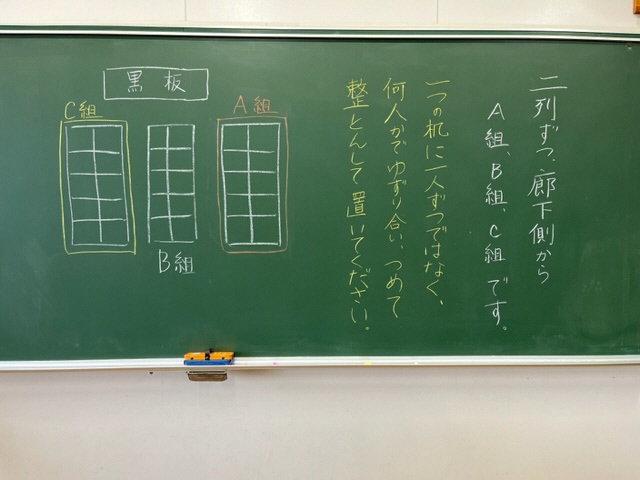 二列ずつ、廊下側から
A組、B組、C組です。
一つの机に一人ずつではなく、
何人かでゆずり合い、つめて
整とんして置いてください。
黒板
C組
A組
B組